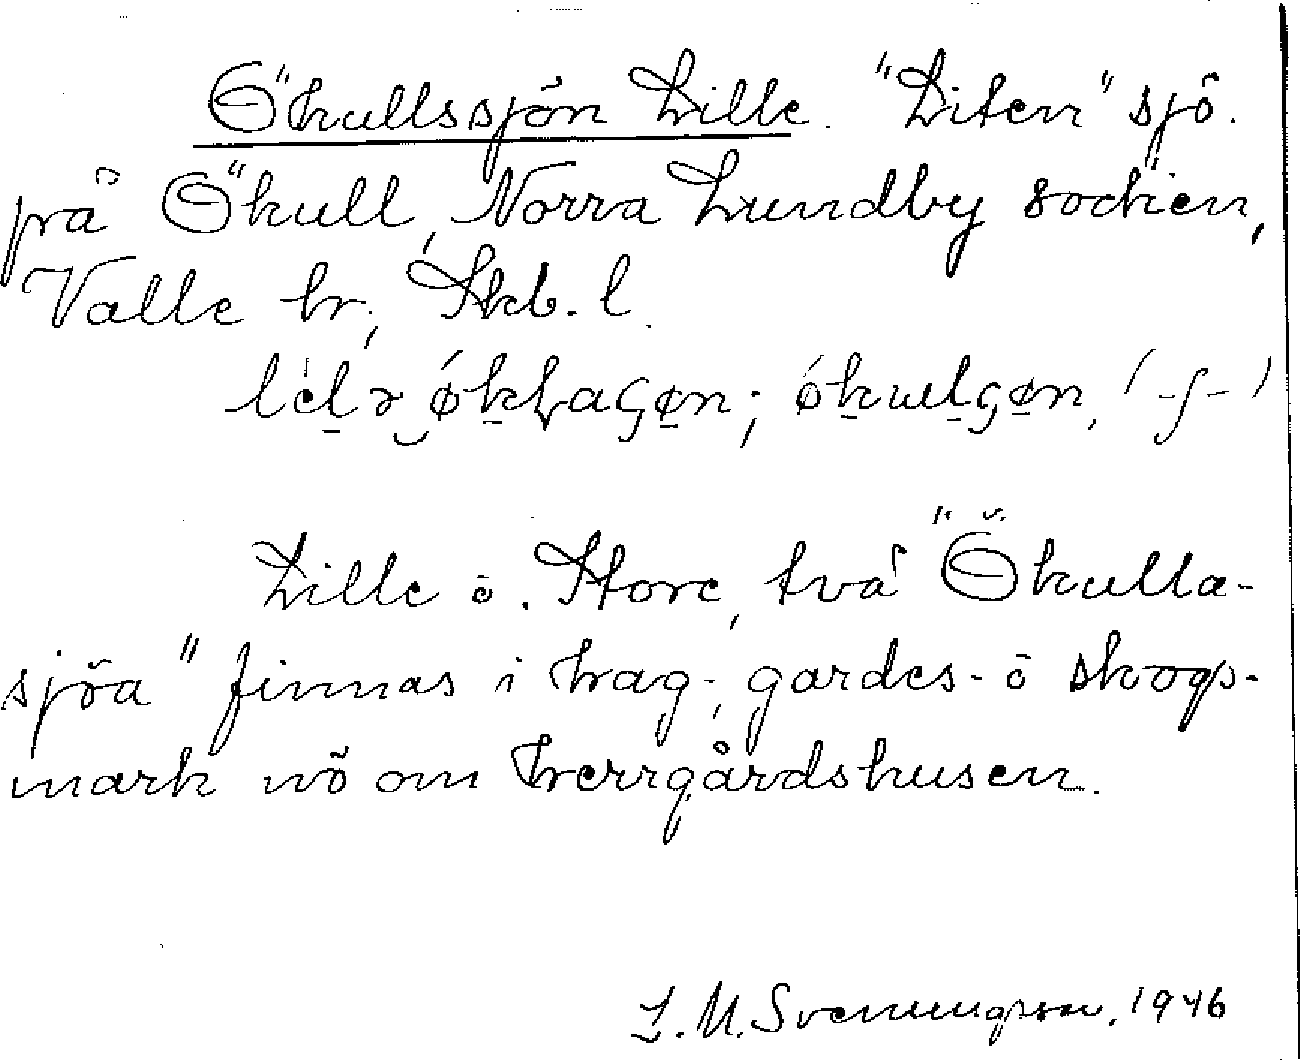 Ökullssjön Lille. "Liten" sjö.
på Ökull, Norra Lundby socken,
Valle hr; Skb. l.
Lille o. Store, två "Ökulla-
sjöa" finnas i hag-, gardes- o skogs-
mark nö om herrgårdshusen.
L.M. Svenungsson, 1946